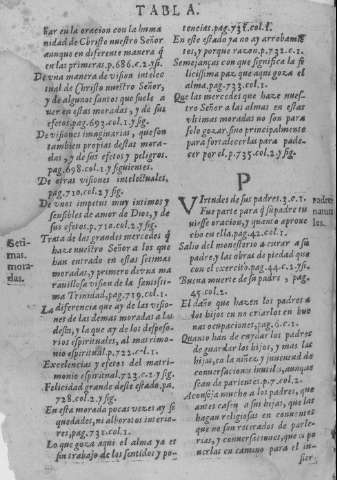 TABLA.
ſar en la oracion con la huma
nidad de Chriſto nueſtro Señor
aunque en diferente manera q̃
en las primeras. p. 686. c. 2. y ſi.
De vna manera de viſion intelec
tual de Chriſto nueſtro Señor,
y de algunos santos que ſuele a
uer en eſtas moradas, y de ſus
efetos. pag. 693. col. 1. y ſig.
De viſiones imaginarias, que ſon
tambien propias deſtas mora-
das, y de ſus efetos y peligros.
pag. 698. col. 1. y ſiguientes.
De otras viſiones intelectuales,
pag. 710. col. 2. y ſig.
De vnos impetus muy intimos y
ſenſibles de amor de Dios, y de
ſus efetos. p. 710. col. 2. y ſig.
Seti-
mas.
mora-
das.
Trata de las grandes mercedes q̃
haze nueſtro Señor a los que
han entrado en eſtas ſetimas
moradas, y primero de vna ma
rauilloſa viſion de la ſantiſsi-
ma Trinidad, pag. 719. col. 1.
La diferencia que ay de las viſio-
nes de las demas moradas a las
deſta, y la que ay de los deſpoſo-
rios eſpirituales, al matrimo-
nio eſpiritual. p. 722. c. 1.
Excelencias y efetos del matri-
monio eſpiritual. 722. c. 2. y ſig.
Felicidad grande deſte eſtado, pa.
728. col. 2. y ſig.
En eſta morada pocas vezes ay ſe
quedades, ni alborotos interio-
res, pag. 731. col. 1.
Lo que goza aqui el alma ya es
ſin trabajo de los ſentidos y po-
tencias. pag. 731. col. 1.
En eſte eſtado ya no ay arrobamiẽ
tos, y porque razon. p. 732. c. 1.
Semejanças con que ſignifica la fe
liciſsima paz que aqui goza el
alma. pag. 733. col. 1.
Que las mercedes que haze nueſ-
tro Señor a las almas en eſtas
vltimas moradas no ſon para
ſolo gozar, ſino principalmente
para fortalecerlas para pade-
cer por el. p. 735. col. 2. y ſig.
P
Padres
naturales.
VIrtudes de ſus padres. 3. c. 1.
Fue parte para q̃ ſu padre tu
uieſſe oracion, y quanto aproue
cho en ella. pag. 42. col. 1.
Salio del moneſterio a curar a ſu
padre, y las obras de piedad que
con el exercito. pag. 44. c. 2. y ſi.
Buena muerte de ſu padre, pag.
45. col. 2.
El daño que hazen los padres a
los hijos en no criarlos en bue
nas ocupaciones, pag. 6. c. 1.
Quanto han de cuydar los padres
de guardar los hijos, y mas las
hijas, en la niñez y juuentud de
conuerſaciones inutiles, aunque
ſean de parientes. p. 7. col. 2.
Aconſeja mucho a los padres, que
antes caſen a ſus hijas, que las
hagan religioſas en conuentos
que no ſon recatados de parle-
rias, y conuerſaciones, que es po
nerlas en camino para el in-
fier-